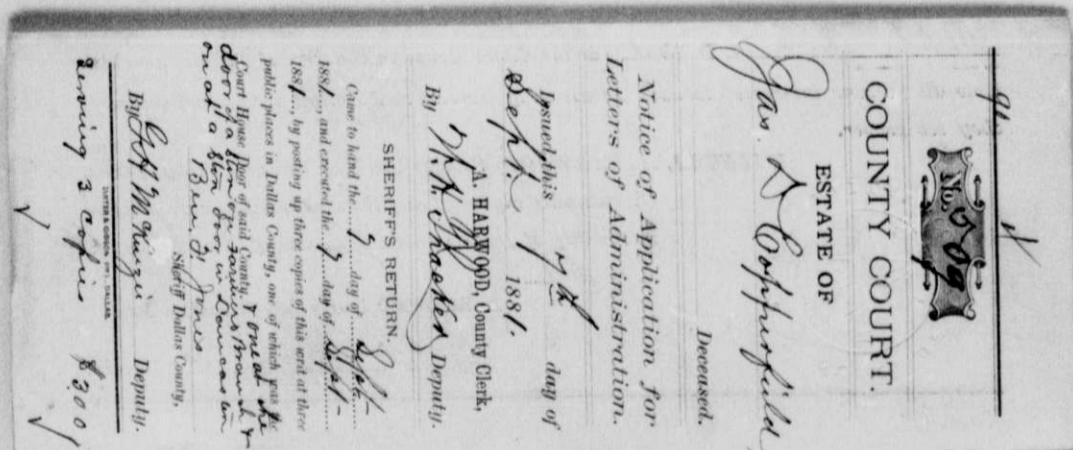 COUNTY COURT.
ESTATE OF
Jas D Copperfield
Deceased.
Notice of Application for
Letters of Administration.
Issued this 7th day of
Sept. 1881.
A. HARWOOD, County Clerk,
By Deputy.
SHERIFF'S RETURN.
Came to hand the 7 day of Sept
1881, and executed the 7 day of Sept
1881, by posting up three copies of this writ at three
public places in Dallas County, one of which was the
Court House Door of said County. & one at the
door of a store on Farmers Branch &
on a store door in Duncan
Ben F. Jones
Sheriff Dallas County,
By Deputy.
serving 3 copies $3.00